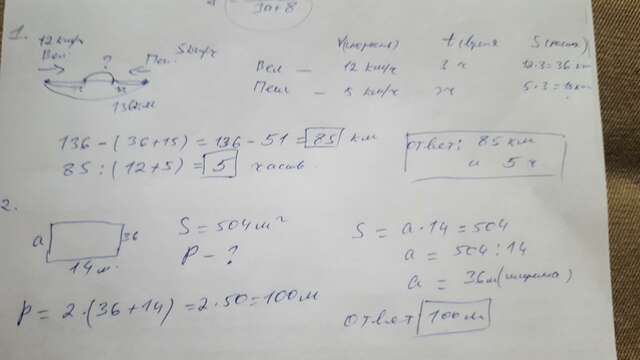 3a+8
1.
12 км/ч
Вел. ? Пеш. 5 км/ч
3ч 3ч
136км
V(скорость) t(время) S(расст.)
Вел — 12 км/ч 3 ч 12·3=36 км
Пеш — 5 км/ч 3ч 5·3=15км
136-(36+15)=136-51=85 км
85:(12+5)=5 часов
ответ: 85 км
и 5 ч
2.
a 36
14 м.
S=504м²
P-?
P=2·(36+14)=2·50=100м
S=a·14=504
a=504:14
a=36м(ширина)
ответ 100м